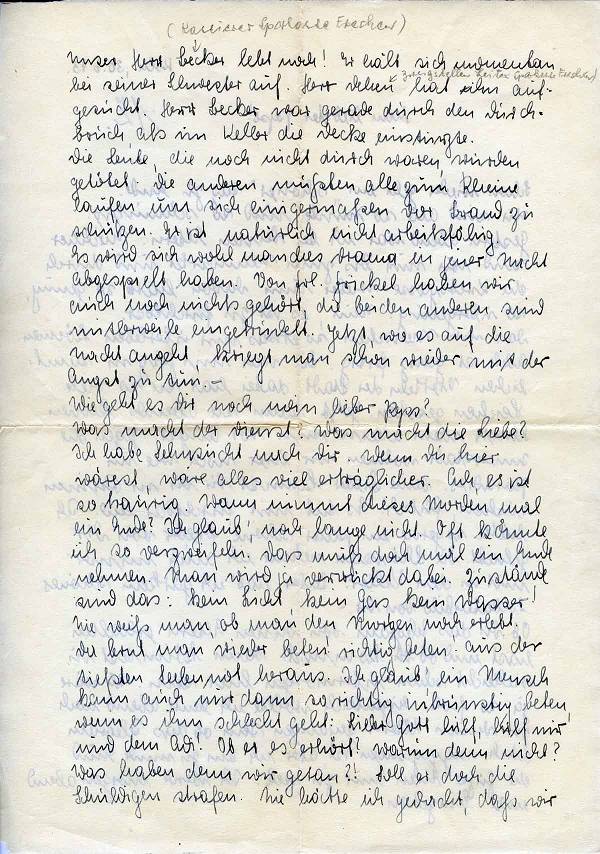 (Kassierer Sparkasse Frechen)
Unser Herr Becker lebt noch! Er hält sich momentan
bei seiner Schwester auf. Herr hat ihn auf-
Zweigstellen Leiter Sparkasse Frechen)
gesucht. Herr Becker war gerade durch den Durch-
bruch als im Keller die Decke einstürzte.
Die Leute, die noch nicht durch waren, wurden
getötet. Die anderen mußten alle zum Rheine
laufen um sich einigermaßen vor Brand zu
schützen. Er ist natürlich nicht arbeitsfähig.
Es wird sich wohl manches Drama in jener Nacht
abgespielt haben. Von Frl. Frickel haben wir
auch noch nichts gehört, die beiden anderen sind
mittlerweile eingetrudelt. Jetzt, wo es auf die
Nacht angeht, kriegt man schon wieder mit der
Angst zu tun. –
Wie geht es Dir noch mein lieber Paps?
Was macht der Dienst? Was macht die Liebe?
Ich habe Sehnsucht nach Dir. Wenn Du hier
wärest, wäre alles viel erträglicher. Ach, es ist
so traurig. Wann nimmt dieses Morden mal
ein Ende? Ich glaub', noch lange nicht. Oft könnte
ich so verzweifeln. Das muß doch mal ein Ende
nehmen. Man wird ja verrückt dabei. Zustände
sind das: kein Licht, kein Gas kein Wasser!
Nie weiß man, ob man den Morgen noch erlebt.
Da lernt man wieder beten, richtig beten, aus der
tiefsten Seelennot heraus. Ich glaub ein Mensch
kann auch nur dann so richtig inbrünstig beten,
wenn es ihm schlecht geht: Lieber Gott hilf, hilf mir
und dem Adi! Ob er es erhört? Warum denn nicht?
Was haben denn wir getan?! Soll er doch die
Schuldigen strafen. Nie hätte ich gedacht, daß wir